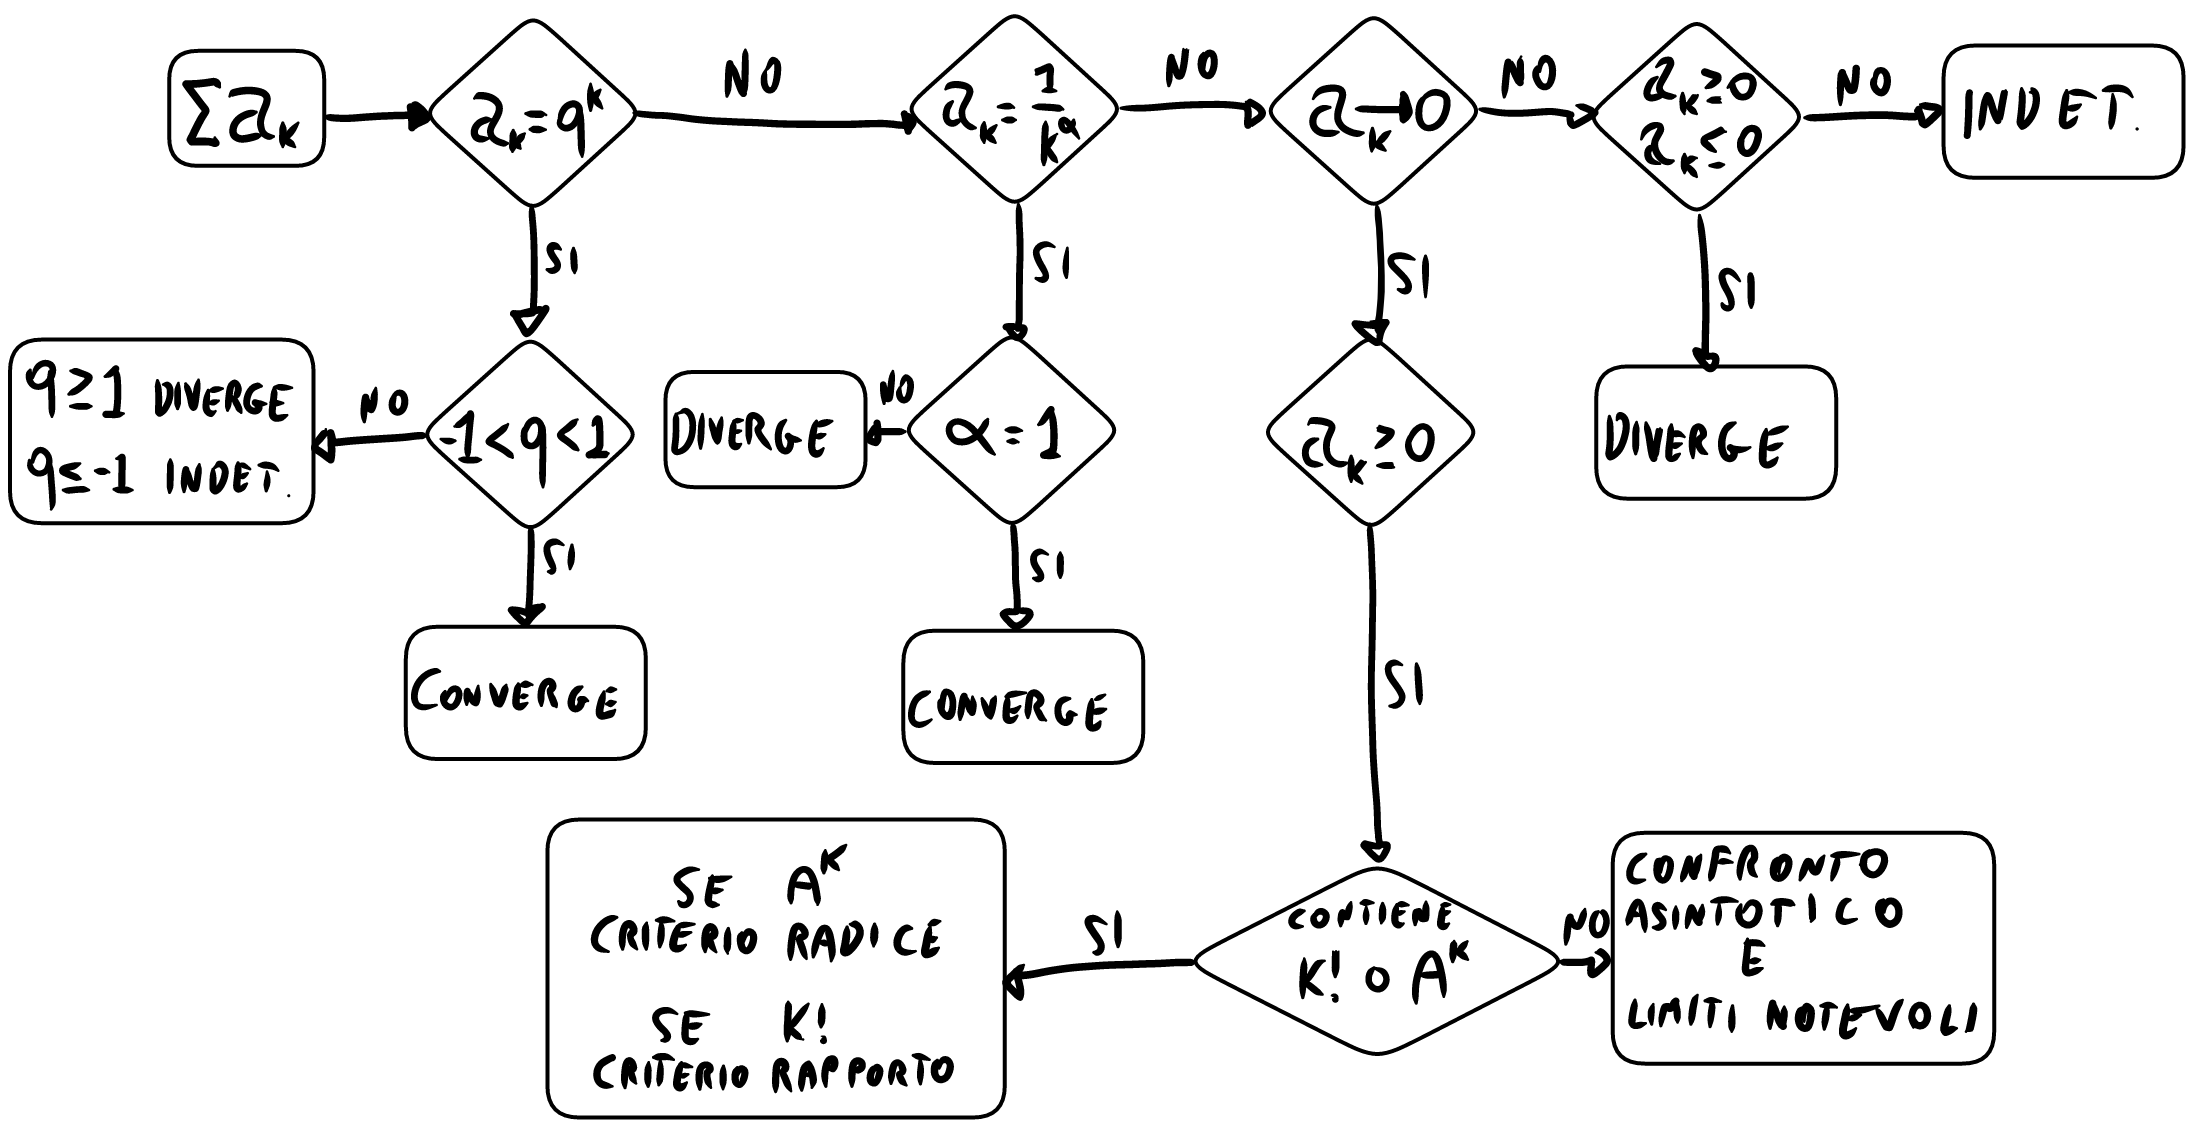 Σ a_k
a_k = q^k
NO
a_k = 1/k^α
NO
a_k → 0
NO
a_k ≥ 0
a_k ≤ 0
NO
INDET.
SI
SI
SI
SI
q ≥ 1 DIVERGE
q ≤ -1 INDET.
NO
-1 < q < 1
DIVERGE
NO
α = 1
a_k ≥ 0
DIVERGE
SI
SI
CONVERGE
CONVERGE
SI
SE A^K
CRITERIO RADICE
SE K!
CRITERIO RAPPORTO
SI
CONTIENE
K! O A^K
NO
CONFRONTO
ASINTOTICO
E
LIMITI NOTEVOLI